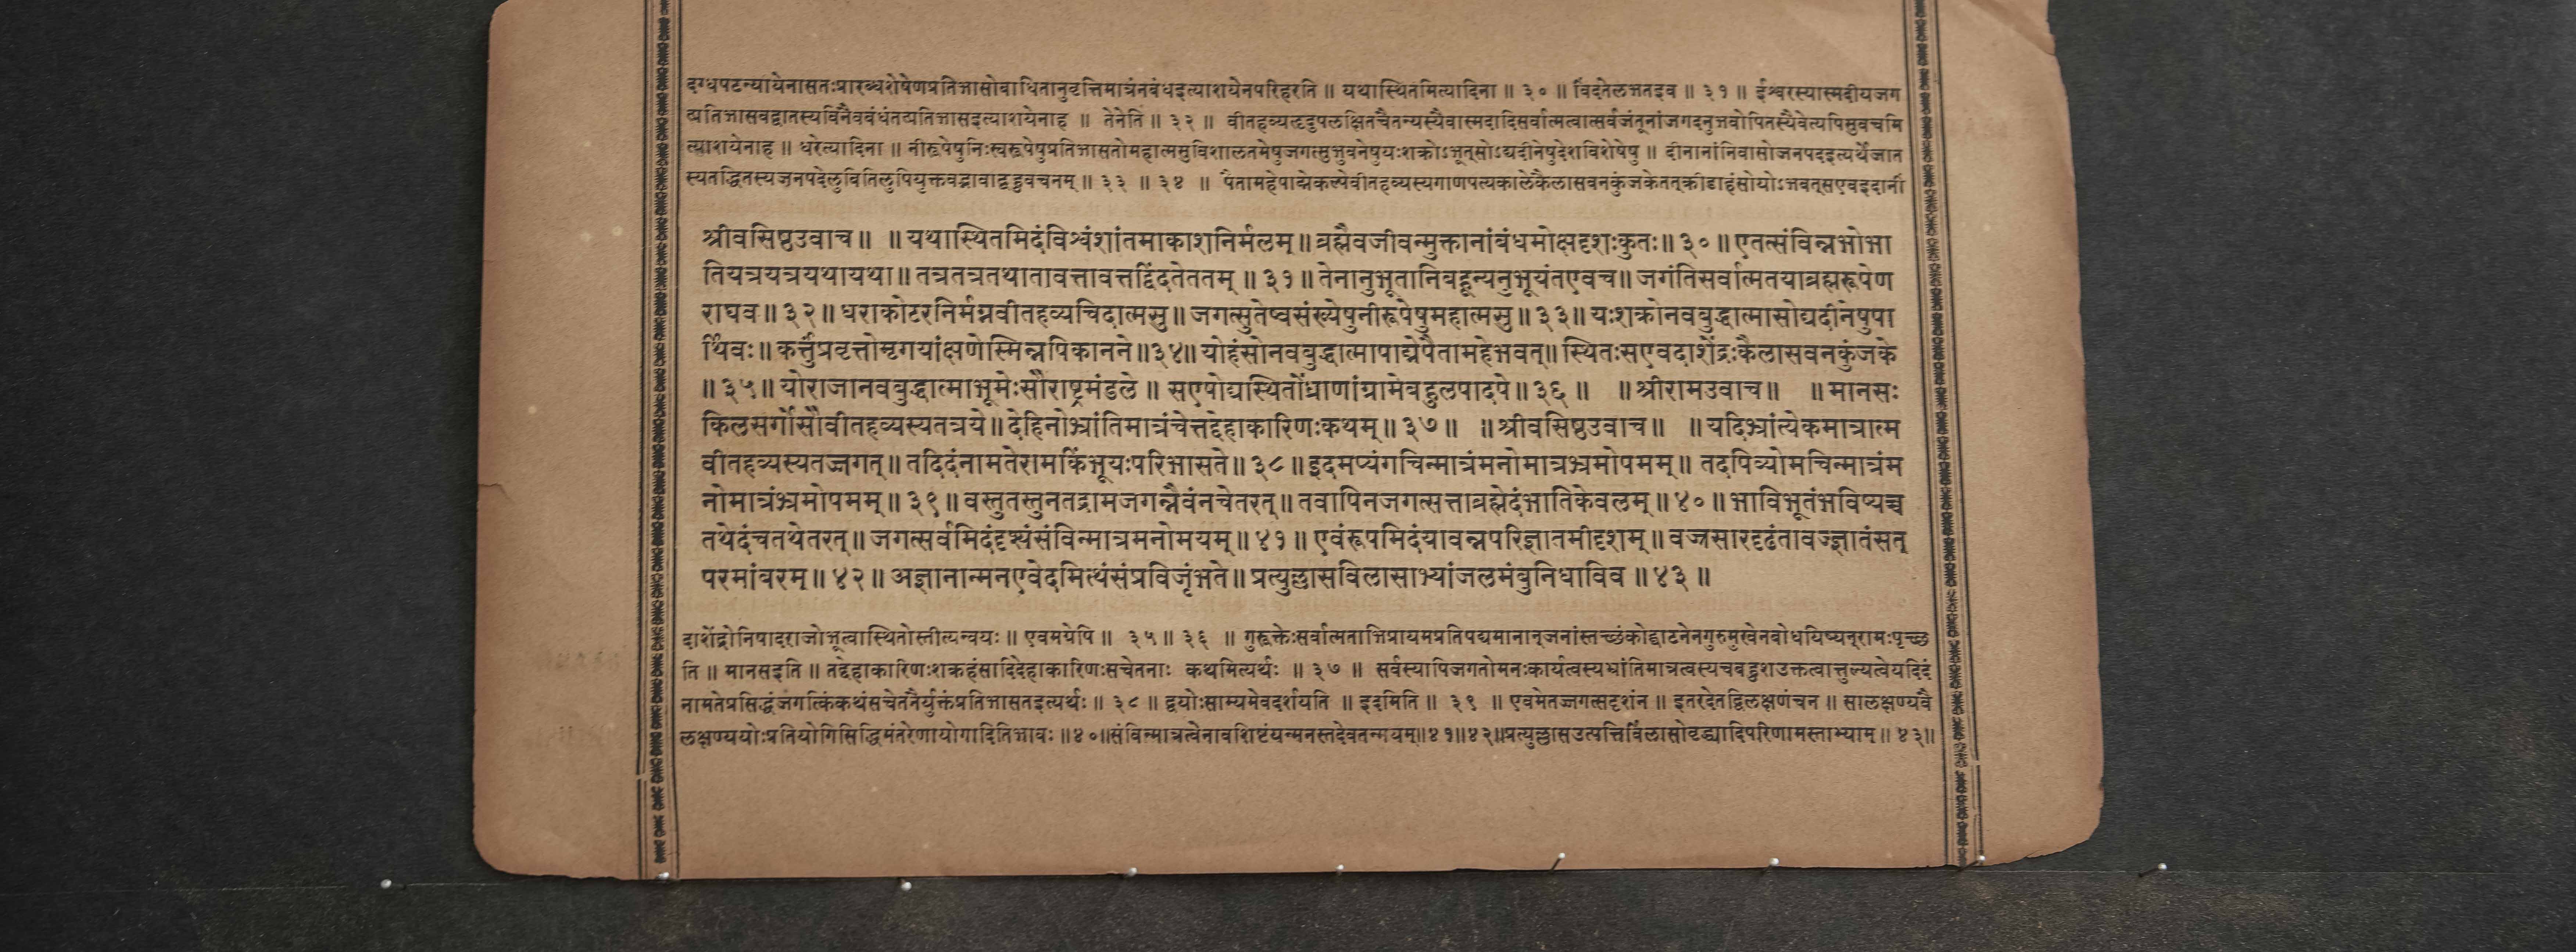 दग्धपटन्यायेनासतःप्रारब्धशेषेणप्रतिभासोबाधितानुवृत्तिमात्रंनबंधइत्याशयेनपरिहरति ॥ यथास्थितमित्यादिना ॥ ३० ॥ विंदतेलभतइव ॥ ३१ ॥ ईश्वरस्यास्मदीयजग
त्प्रतिभासवद्वातस्यविनैवबंधंतत्प्रतिभासइत्याशयेनाह ॥ तेनेति ॥ ३२ ॥ वीतहव्यत्हृदुपलक्षितचैतन्यस्यैवास्मदादिसर्वात्मत्वात्सर्वजंतूनांजगदनुभवोपितस्यैवेत्यपिसुवचमि
त्याशयेनाह ॥ धरेत्यादिना ॥ नीरूपेषुनिःस्वरूपेषुप्रतिभासतोमहात्मसुविशालतमेषुजगत्सुभुवनेषुयःशक्रोऽभूत्सोऽद्यदीनेषुदेशविशेषेषु ॥ दीनानांनिवासोजनपदइत्यर्थेजात
स्यतद्धितस्यजनपदेलुबितिलुपियुक्तवद्भावाद्बहुवचनम् ॥ ३३ ॥ ३४ ॥ पैतामहेपाद्मेकल्पेवीतहव्यस्यगाणपत्यकालेकैलासवनकुंजकेतत्क्रीडाहंसोयोऽभवत्सएवइदानीं
श्रीवसिष्ठउवाच ॥ ॥ यथास्थितमिदंविश्वंशांतमाकाशनिर्मलम् ॥ ब्रह्मैवजीवन्मुक्तानांबंधमोक्षदृशःकुतः ॥ ३० ॥ एतत्संविन्नभोभा
तियत्रयत्रयथायथा ॥ तत्रतत्रतथातावत्तावत्तद्विंदतेततम् ॥ ३१ ॥ तेनानुभूतानिबहून्यनुभूयंतएवच ॥ जगंतिसर्वात्मतयाब्रह्मरूपेण
राघव ॥ ३२ ॥ धराकोटरनिर्मग्नवीतहव्यचिदात्मसु ॥ जगत्सुतेष्वसंख्येषुनीरूपेषुमहात्मसु ॥ ३३ ॥ यःशक्रोनवबुद्धात्मासोद्यदीनेषुपा
र्थिवः ॥ कर्त्तुंप्रवृत्तोमृगयांक्षणेस्मिन्नपिकानने ॥ ३४ ॥ योहंसोनवबुद्धात्मापाद्मेपैतामहेभवत् ॥ स्थितःसएवदाशेंद्रःकैलासवनकुंजके
॥ ३५ ॥ योराजानवबुद्धात्माभूमेःसौराष्ट्रमंडले ॥ सएषोद्यस्थितोंध्राणांग्रामेबहुलपादपे ॥ ३६ ॥ ॥ श्रीरामउवाच ॥ ॥ मानसः
किलसर्गोसौवीतहव्यस्यतत्रये ॥ देहिनोभ्रांतिमात्रंचेत्तद्देहाकारिणःकथम् ॥ ३७ ॥ ॥ श्रीवसिष्ठउवाच ॥ ॥ यदिभ्रांत्येकमात्रात्म
वीतहव्यस्यतज्जगत् ॥ तदिदंनामतेरामकिंभूयःपरिभासते ॥ ३८ ॥ इदमप्यंगचिन्मात्रंमनोमात्रभ्रमोपमम् ॥ तदपिव्योमचिन्मात्रंम
नोमात्रंभ्रमोपमम् ॥ ३९ ॥ वस्तुतस्तुनतद्रामजगन्नैवंनचेतरत् ॥ तवापिनजगत्सत्ताब्रह्मेदंभातिकेवलम् ॥ ४० ॥ भाविभूतंभविष्यच्च
तथेदंचतथेतरत् ॥ जगत्सर्वमिदंदृश्यंसंविन्मात्रमनोमयम् ॥ ४१ ॥ एवंरूपमिदंयावन्नपरिज्ञातमीदृशम् ॥ वज्रसारदृढंतावज्ज्ञातंसत्
परमांबरम् ॥ ४२ ॥ अज्ञानान्मनएवेदमित्थंसंप्रविजृंभते ॥ प्रत्युल्लासविलासाभ्यांजलमंबुनिधाविव ॥ ४३ ॥
दाशेंद्रोनिषादराजोभूत्वास्थितोस्तीत्यन्वयः ॥ एवमग्रेपि ॥ ३५ ॥ ३६ ॥ गुरूक्तेःसर्वात्मताभिप्रायमप्रतिपद्यमानान्जनांस्तच्छंकोद्घाटनेनगुरुमुखेनबोधयिष्यन्रामःपृच्छ
ति ॥ मानसइति ॥ तद्देहाकारिणःशक्रहंसादिदेहाकारिणःसचेतनाः कथमित्यर्थः ॥ ३७ ॥ सर्वस्यापिजगतोमनःकार्यत्वस्यभ्रांतिमात्रत्वस्यचबहुशउक्तत्वात्तुल्यत्वेयदिदं
नामतेप्रसिद्धंजगत्किंकथंसचेतनैर्युक्तंप्रतिभासतइत्यर्थः ॥ ३८ ॥ द्वयोःसाम्यमेवदर्शयति ॥ इदमिति ॥ ३९ ॥ एवमेतज्जगत्सदृशंन ॥ इतरदेतद्विलक्षणंचन ॥ सालक्षण्यवै
लक्षण्ययोःप्रतियोगिसिद्धिमंतरेणायोगादितिभावः ॥ ४० ॥ संविन्मात्रत्वेनावशिष्टंयन्मनस्तदेवतन्मयम् ॥ ४१ ॥ ४२ ॥ प्रत्युल्लासउत्पत्तिर्विलासोवृद्ध्यादिपरिणामस्ताभ्याम् ॥ ४३ ॥